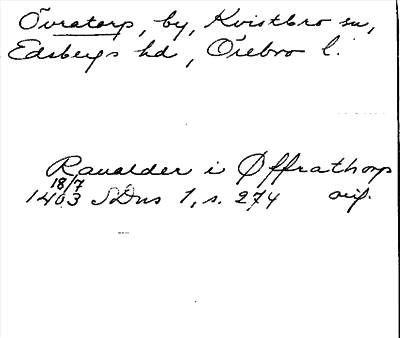 Övratorp, by, Kvistbro sn,
Edsbergs hd, Örebro l.
Raualder i Øffrathorp
18/7 1403 SDns 1, s. 274 orig.